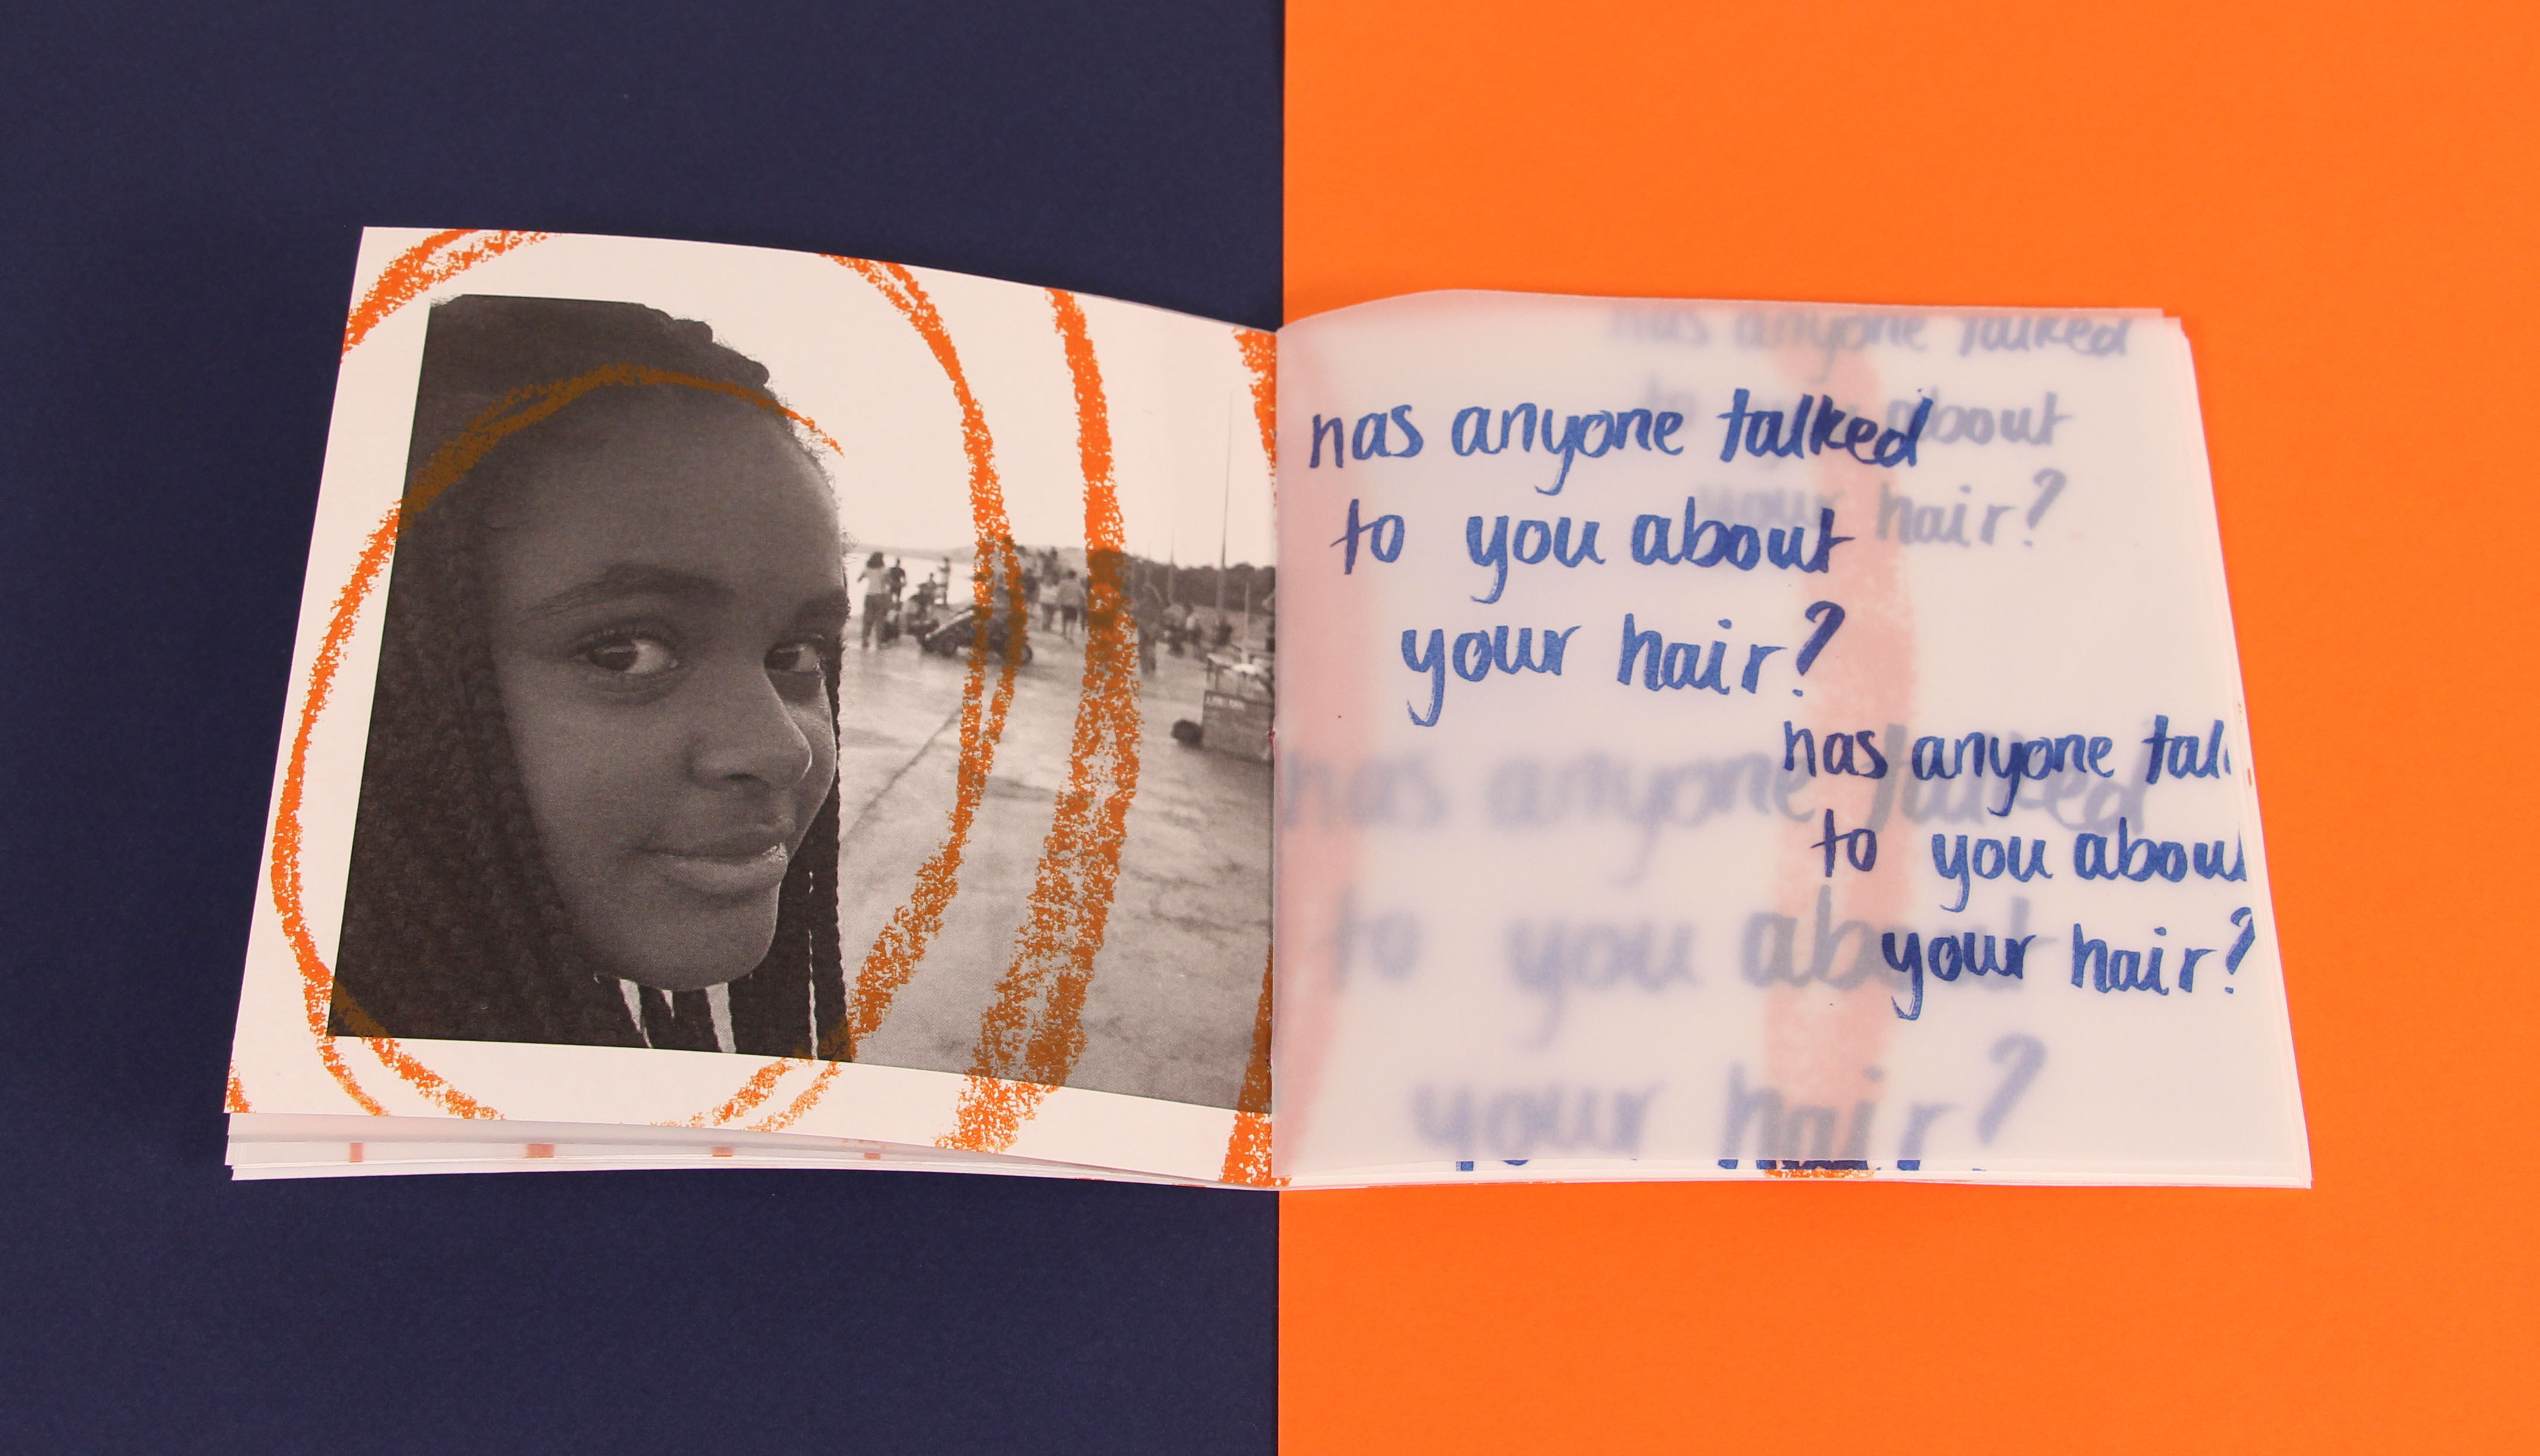 has anyone talked
to you about
your hair?
has anyone talked
to you about
your hair?
has anyone tal
to you abou
your hair?
has anyone talked
to you about
your hair?